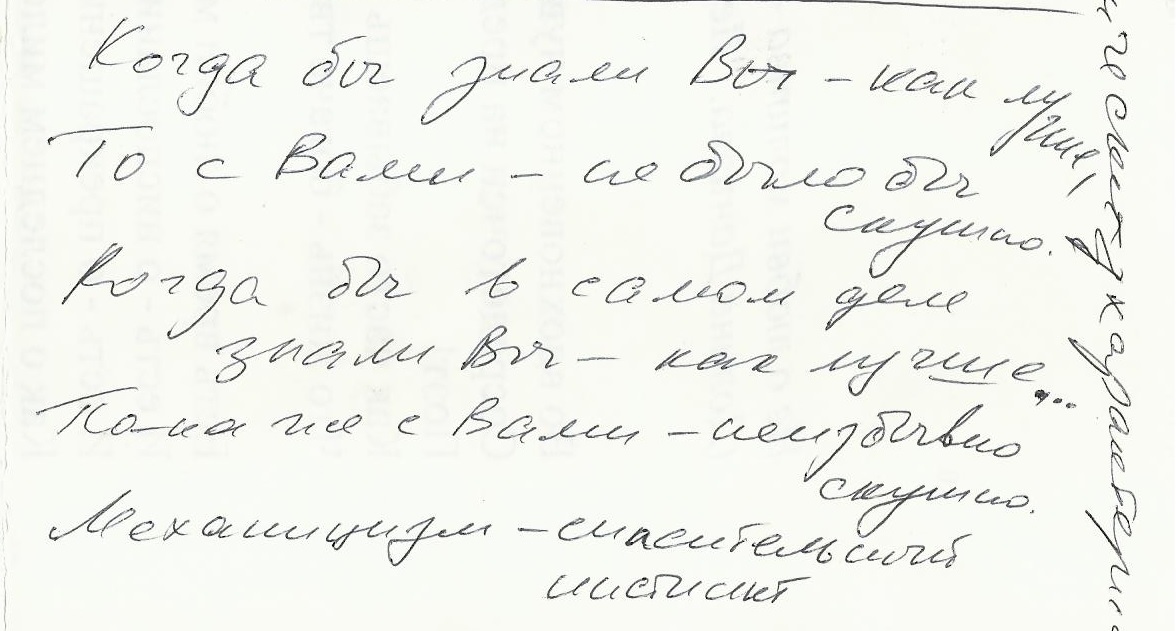 Когда бы знали Вы – как лучше,
То с Вами – не было бы
скушно.
Когда бы в самом деле
знали Вы – как лучше...
По-ка же с Вами – неизбывно
скушно.
Механицизм – спасительный
инстинкт